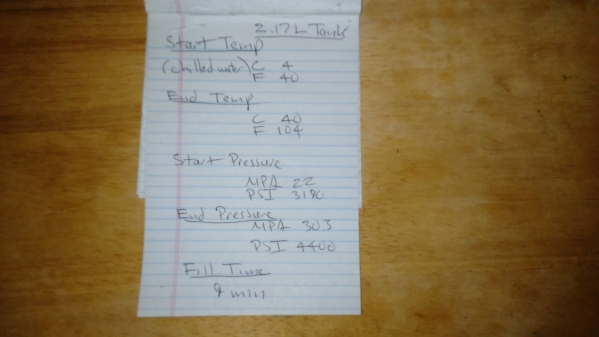 2.17 L Tank
Start Temp
(chilled water) C 4
F 40
End Temp
C 40
F 104
Start Pressure
MPA 22
PSI 3190
End Pressure
MPA 303
PSI 4400
Fill Time
9 min